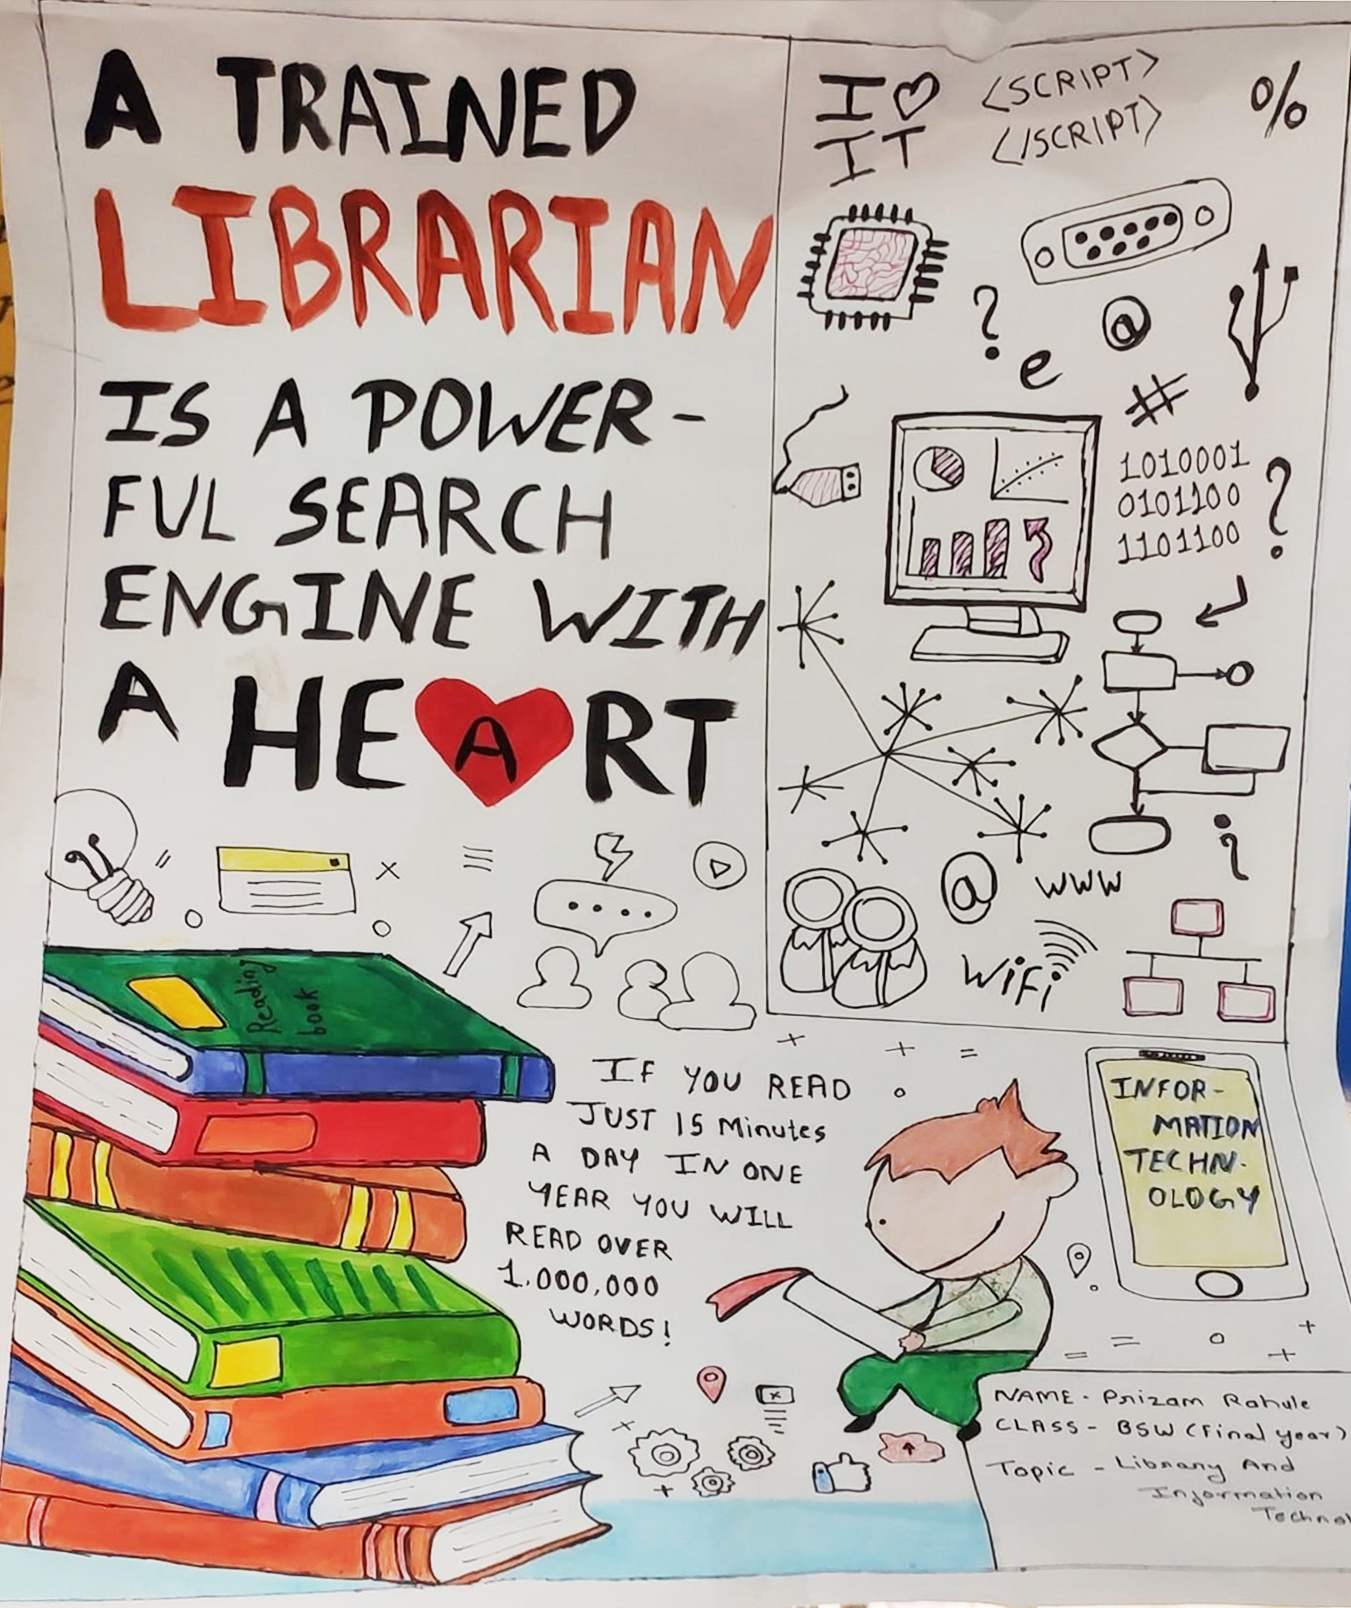 A TRAINED
LIBRARIAN
IS A POWER-
FUL SEARCH
ENGINE WITH
A HEART
I ♡
IT
<SCRIPT>
</SCRIPT>
%
?
e
@
#
1010001
0101100
1101100
?
i
@
WWW
WiFi
Reading
book
IF YOU READ
JUST 15 Minutes
A DAY IN ONE
YEAR YOU WILL
READ OVER
1,000,000
WORDS!
INFOR-
MATION
TECHN-
OLOGY
NAME - Prizam Rahule
CLASS - BSW (Final year)
Topic - Library And
Information
Technol